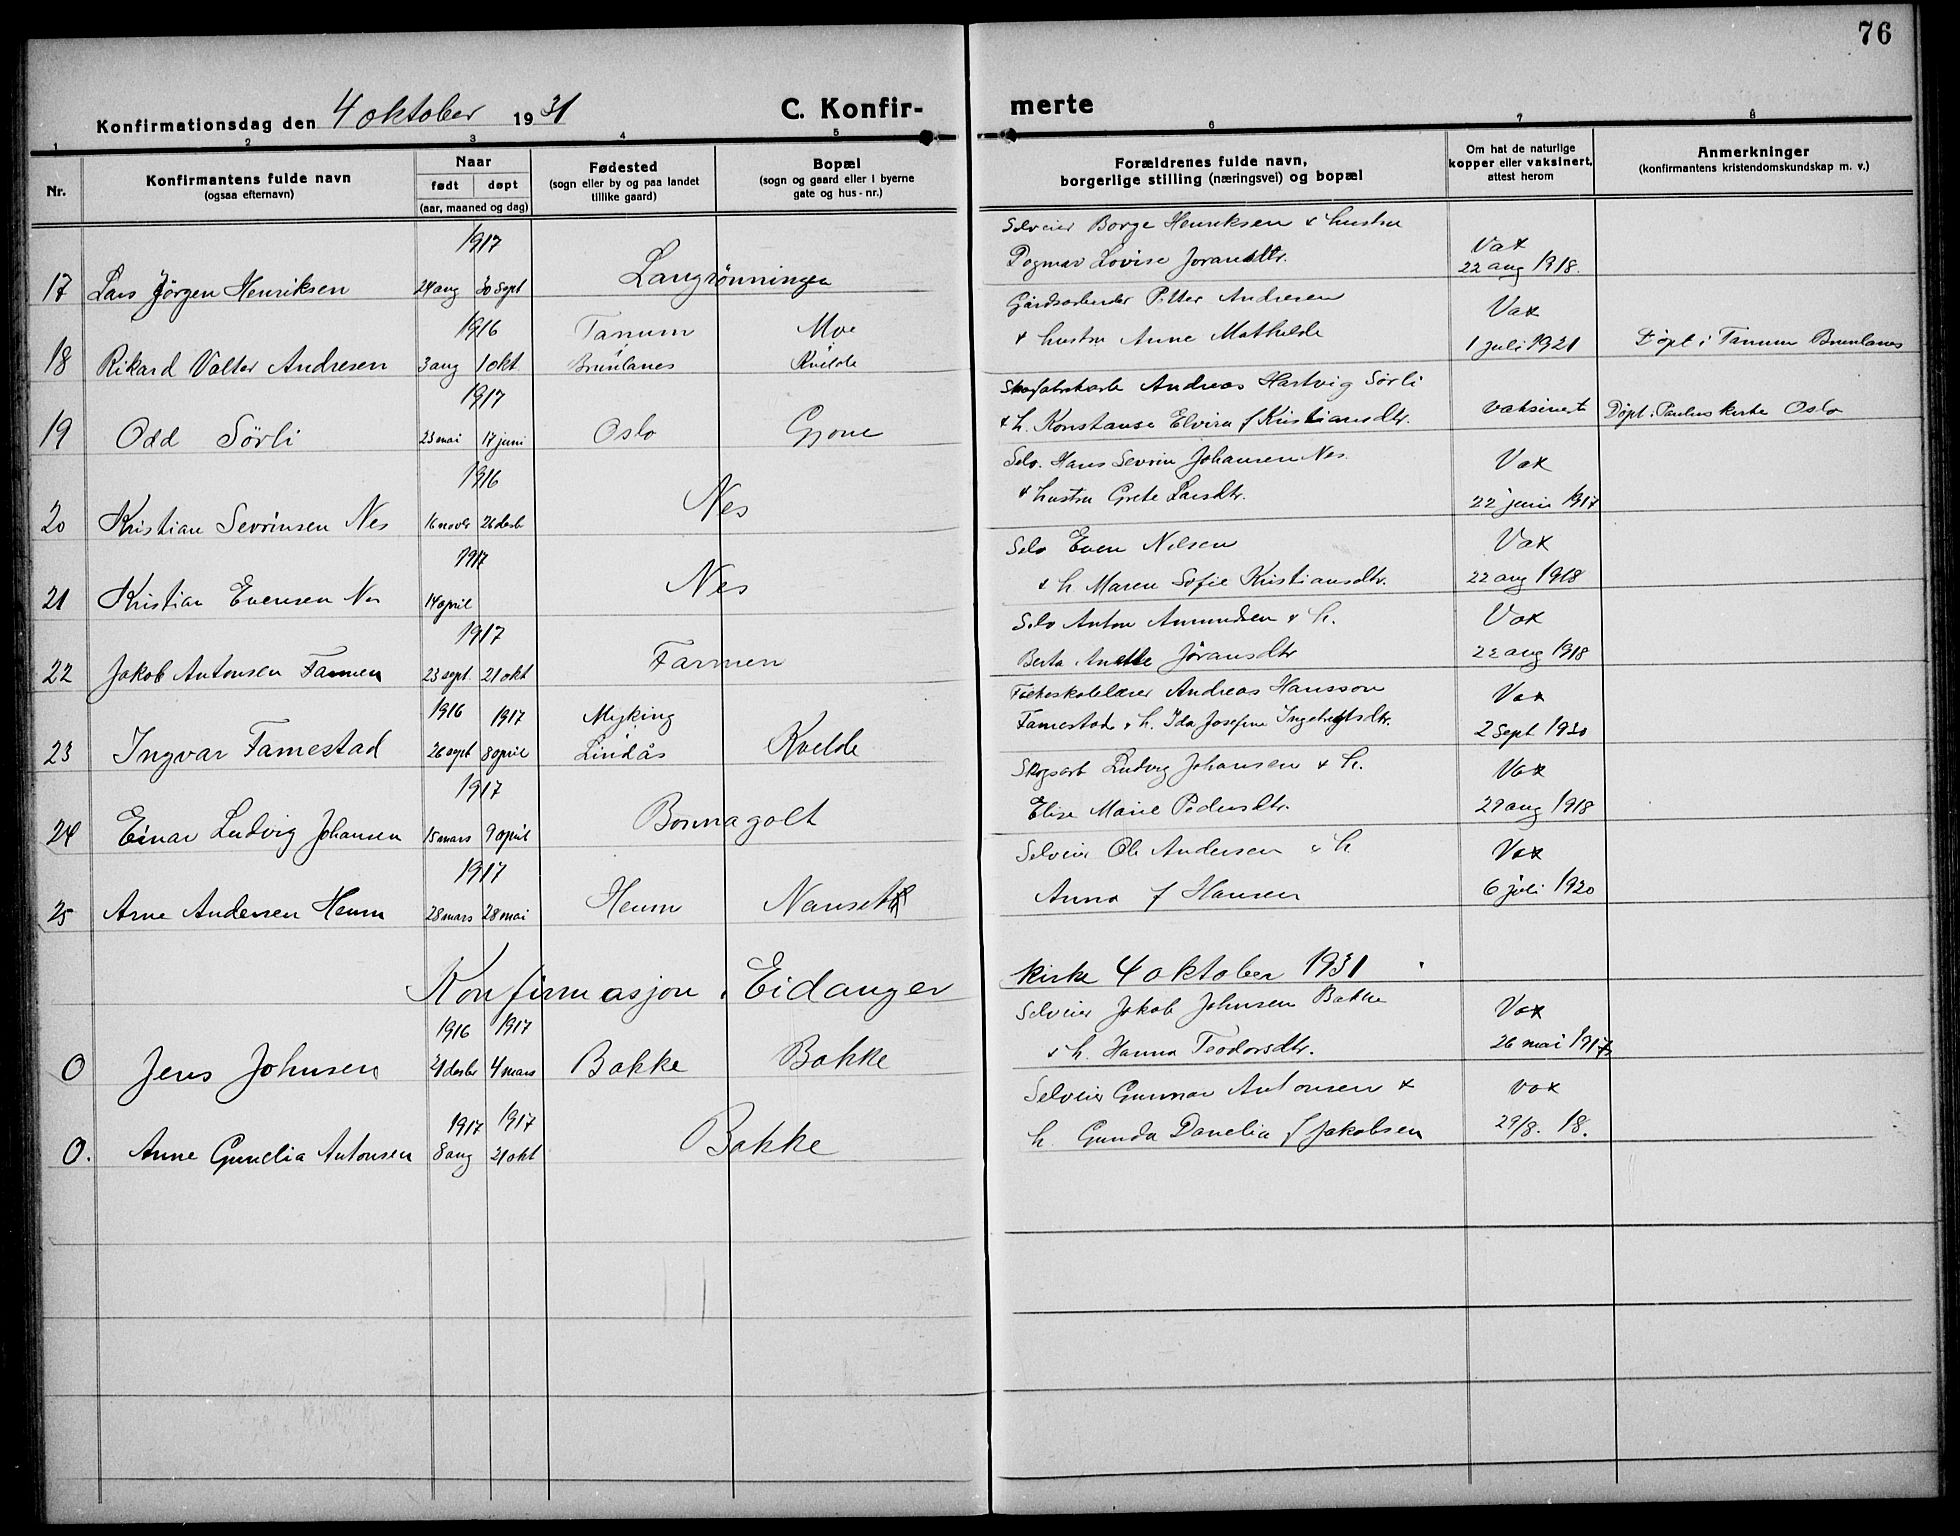 76
Konfirmationsdag den 4 oktober 1931 C. Konfir- merte
1 2 3 4 5 6 7 8
Nr.
Konfirmantens fulde navn
(ogsaa efternavn)
Naar
født døpt
(aar, maaned og dag)
Fødested
(sogn eller by og paa landet
tillike gaard)
Bopæl
(sogn og gaard eller i byerne
gate og hus-nr.)
Forældrenes fulde navn,
borgerlige stilling (næringsvei) og bopæl
Om hat de naturlige
kopper eller vaksinert,
attest herom
Anmerkninger
(konfirmantens kristendomskundskap m. v.)
1917 Selveier Borge Henriksen & hustru Vax
17 Lars Jörgen Henriksen 24 aug 30 sept Langrönningen Dagmar Lovise Joransdtr. 22 aug 1918.
1916 Tanum Moe Gårdsarbeider Petter Andresen Vax
18 Rikard Valter Andresen 3 aug 1 okt Brunlanes Kvelde & hustru Anne Mathilde 1 juli 1921 Döpt i Tanum Brunlanes
1917 Andreas Hartvig Sörli
19 Odd Sörli 23 mai 17 juni Oslo Gjone & h. Konstanse Elvira f Kristiansdtr. vaksinert Döpt i Paulus kirke Oslo
1916 Selv. Hans Sevrin Johansen Nes Vax
20 Kristian Sevrinsen Nes 16 novbr 26 desbr Nes & hustru Grete Larsdtr. 22 juni 1917
1917 Selv Even Nilsen Vax
21 Kristian Evensen Nes 14 april Nes & h. Maren Sofie Kristiansdtr. 22 aug 1918
1917 Selv Anton Amundsen & h. Vax
22 Jakob Antonsen Farmen 23 sept 21 okt Farmen Berta Anette Jöransdtr 22 aug 1918
1916 1917 Myking Folkeskolelærer Andreas Hansson Vax
23 Ingvar Famestad 26 sept 8 april Lindås Kvelde Famestad & h. Ida Josefine Ingebrigtsdtr. 2 Sept 1920
1917 Skogsarb Ludvig Johansen & h. Vax
24 Einar Ludvig Johansen 15 mars 9 april Bonnagolt Elise Marie Pedersdtr. 29 aug 1918
1917 Selveier Ole Andersen & h Vax
25 Arne Andersen Heum 28 mars 28 mai Heum Nanset Anna f Hansen 6 juli 1920
Konfirmasjon i Eidanger kirke 4 oktober 1931
1916 1917 Selveier Jakob Johnsen Bakke Vax
0 Jens Johnsen 21 desbr 4 mars Bakke Bakke & h. Hanna Teodorsdtr. 26 mai 1917
1917 1917 Selveier Gunnar Antonsen & vax
0. Anne Gunelia Antonsen 8 aug 21 okt Bakke h. Gunda Danelia f Jakobsen 29/8. 18.